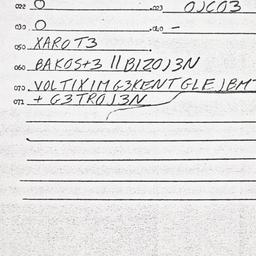 022 O .023 OJC03
030 O .040 -
050 XAROT3
060 BAKOS+3 11B1ZOJ3N
070 VOLTIXIMG3KENTGLEJBMT
071 + G3TROJ3N